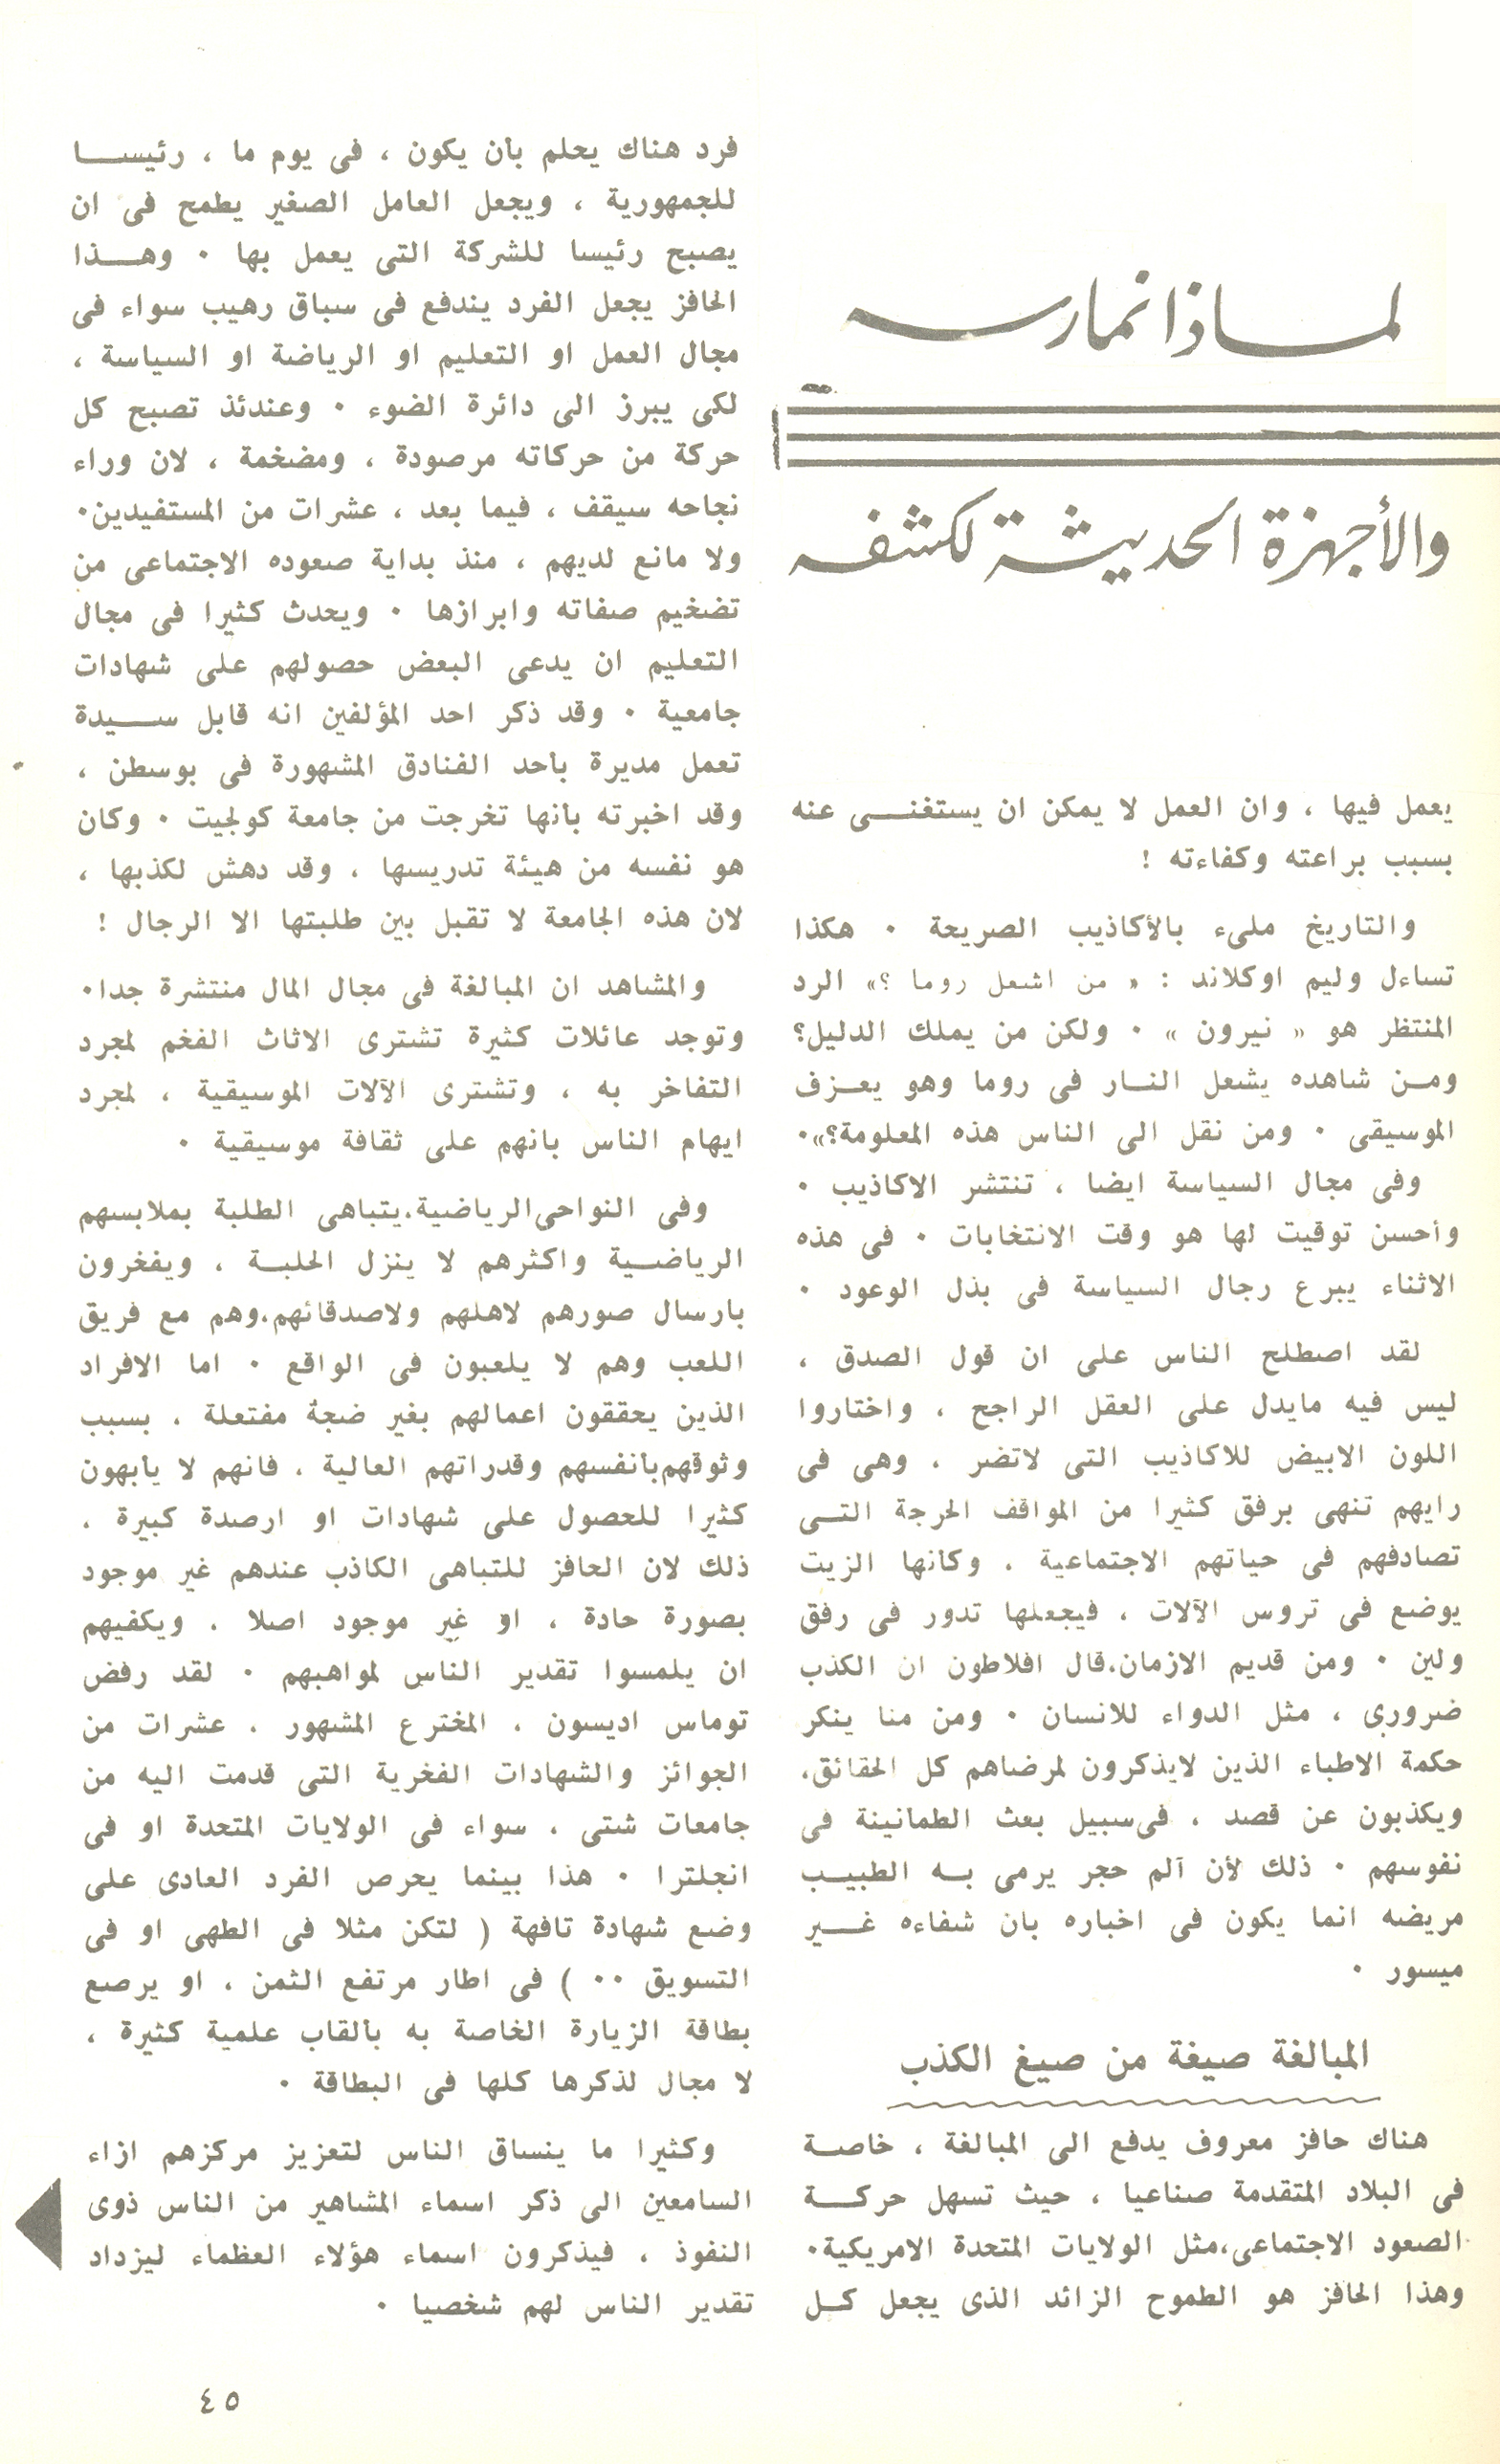 لماذا نمارسه
والأجهزة الحديثة لكشفه
يعمل فيها ، وان العمل لا يمكن ان يستغنى عنه
بسبب براعته وكفاءته !
والتاريخ ملىء بالأكاذيب الصريحة . هكذا
تساءل وليم اوكلاند : « من اشعل روما ؟» الرد
المنتظر هو « نيرون » . ولكن من يملك الدليل؟
ومن شاهده يشعل النار فى روما وهو يعزف
الموسيقى . ومن نقل الى الناس هذه المعلومة؟».
وفى مجال السياسة ايضا ، تنتشر الاكاذيب .
وأحسن توقيت لها هو وقت الانتخابات . فى هذه
الاثناء يبرع رجال السياسة فى بذل الوعود .
لقد اصطلح الناس على ان قول الصدق ،
ليس فيه مايدل على العقل الراجح ، واختاروا
اللون الابيض للاكاذيب التى لاتضر ، وهى فى
رايهم تنهى برفق كثيرا من المواقف الحرجة التى
تصادفهم فى حياتهم الاجتماعية ، وكانها الزيت
يوضع فى تروس الآلات ، فيجعلها تدور فى رفق
ولين . ومن قديم الازمان،قال افلاطون ان الكذب
ضرورى ، مثل الدواء للانسان . ومن منا ينكر
حكمة الاطباء الذين لايذكرون لمرضاهم كل الحقائق،
ويكذبون عن قصد ، فى سبيل بعث الطمانينة فى
نفوسهم . ذلك لأن آلم حجر يرمى به الطبيب
مريضه انما يكون فى اخباره بان شفاءه غير
ميسور .
المبالغة صيغة من صيغ الكذب
هناك حافز معروف يدفع الى المبالغة ، خاصة
فى البلاد المتقدمة صناعيا ، حيث تسهل حركة
الصعود الاجتماعى،مثل الولايات المتحدة الامريكية.
وهذا الحافز هو الطموح الزائد الذى يجعل كل
فرد هناك يحلم بأن يكون ، فى يوم ما ، رئيسا
للجمهورية ، ويجعل العامل الصغير يطمح فى ان
يصبح رئيسا للشركة التى يعمل بها . وهذا
الحافز يجعل الفرد يندفع فى سباق رهيب سواء فى
مجال العمل او التعليم او الرياضة او السياسة ،
لكى يبرز الى دائرة الضوء . وعندئذ تصبح كل
حركة من حركاته مرصودة ، ومضخمة ، لان وراء
نجاحه سيقف ، فيما بعد ، عشرات من المستفيدين.
ولا مانع لديهم ، منذ بداية صعوده الاجتماعى من
تضخيم صفاته وابرازها . ويحدث كثيرا فى مجال
التعليم ان يدعى البعض حصولهم على شهادات
جامعية . وقد ذكر احد المؤلفين انه قابل سيدة
تعمل مديرة بأحد الفنادق المشهورة فى بوسطن ،
وقد اخبرته بأنها تخرجت من جامعة كولجيت . وكان
هو نفسه من هيئة تدريسها ، وقد دهش لكذبها ،
لان هذه الجامعة لا تقبل بين طلبتها الا الرجال !
والمشاهد ان المبالغة فى مجال المال منتشرة جدا.
وتوجد عائلات كثيرة تشترى الاثاث الفخم لمجرد
التفاخر به ، وتشترى الآلات الموسيقية ، لمجرد
ايهام الناس بانهم على ثقافة موسيقية .
وفى النواحى الرياضية،يتباهى الطلبة بملابسهم
الرياضية واكثرهم لا ينزل الحلبة ، ويفخرون
بارسال صورهم لاهلهم ولاصدقائهم،وهم مع فريق
اللعب وهم لا يلعبون فى الواقع . اما الافراد
الذين يحققون اعمالهم بغير ضجة مفتعلة ، بسبب
وثوقهم بأنفسهم وقدراتهم العالية ، فانهم لا يأبهون
كثيرا للحصول على شهادات او ارصدة كبيرة ،
ذلك لان الحافز للتباهى الكاذب عندهم غير موجود
بصورة حادة ، او غير موجود اصلا ، ويكفيهم
ان يلمسوا تقدير الناس لمواهبهم . لقد رفض
توماس اديسون ، المخترع المشهور ، عشرات من
الجوائز والشهادات الفخرية التى قدمت اليه من
جامعات شتى ، سواء فى الولايات المتحدة او فى
انجلترا . هذا بينما يحرص الفرد العادى على
وضع شهادة تافهة ( لتكن مثلا فى الطهى او فى
التسويق .. ) فى اطار مرتفع الثمن ، او يرصع
بطاقة الزيارة الخاصة به بألقاب علمية كثيرة ،
لا مجال لذكرها كلها فى البطاقة .
وكثيرا ما ينساق الناس لتعزيز مركزهم ازاء
السامعين الى ذكر اسماء المشاهير من الناس ذوى
النفوذ ، فيذكرون اسماء هؤلاء العظماء ليزداد
تقدير الناس لهم شخصيا .
٤٥